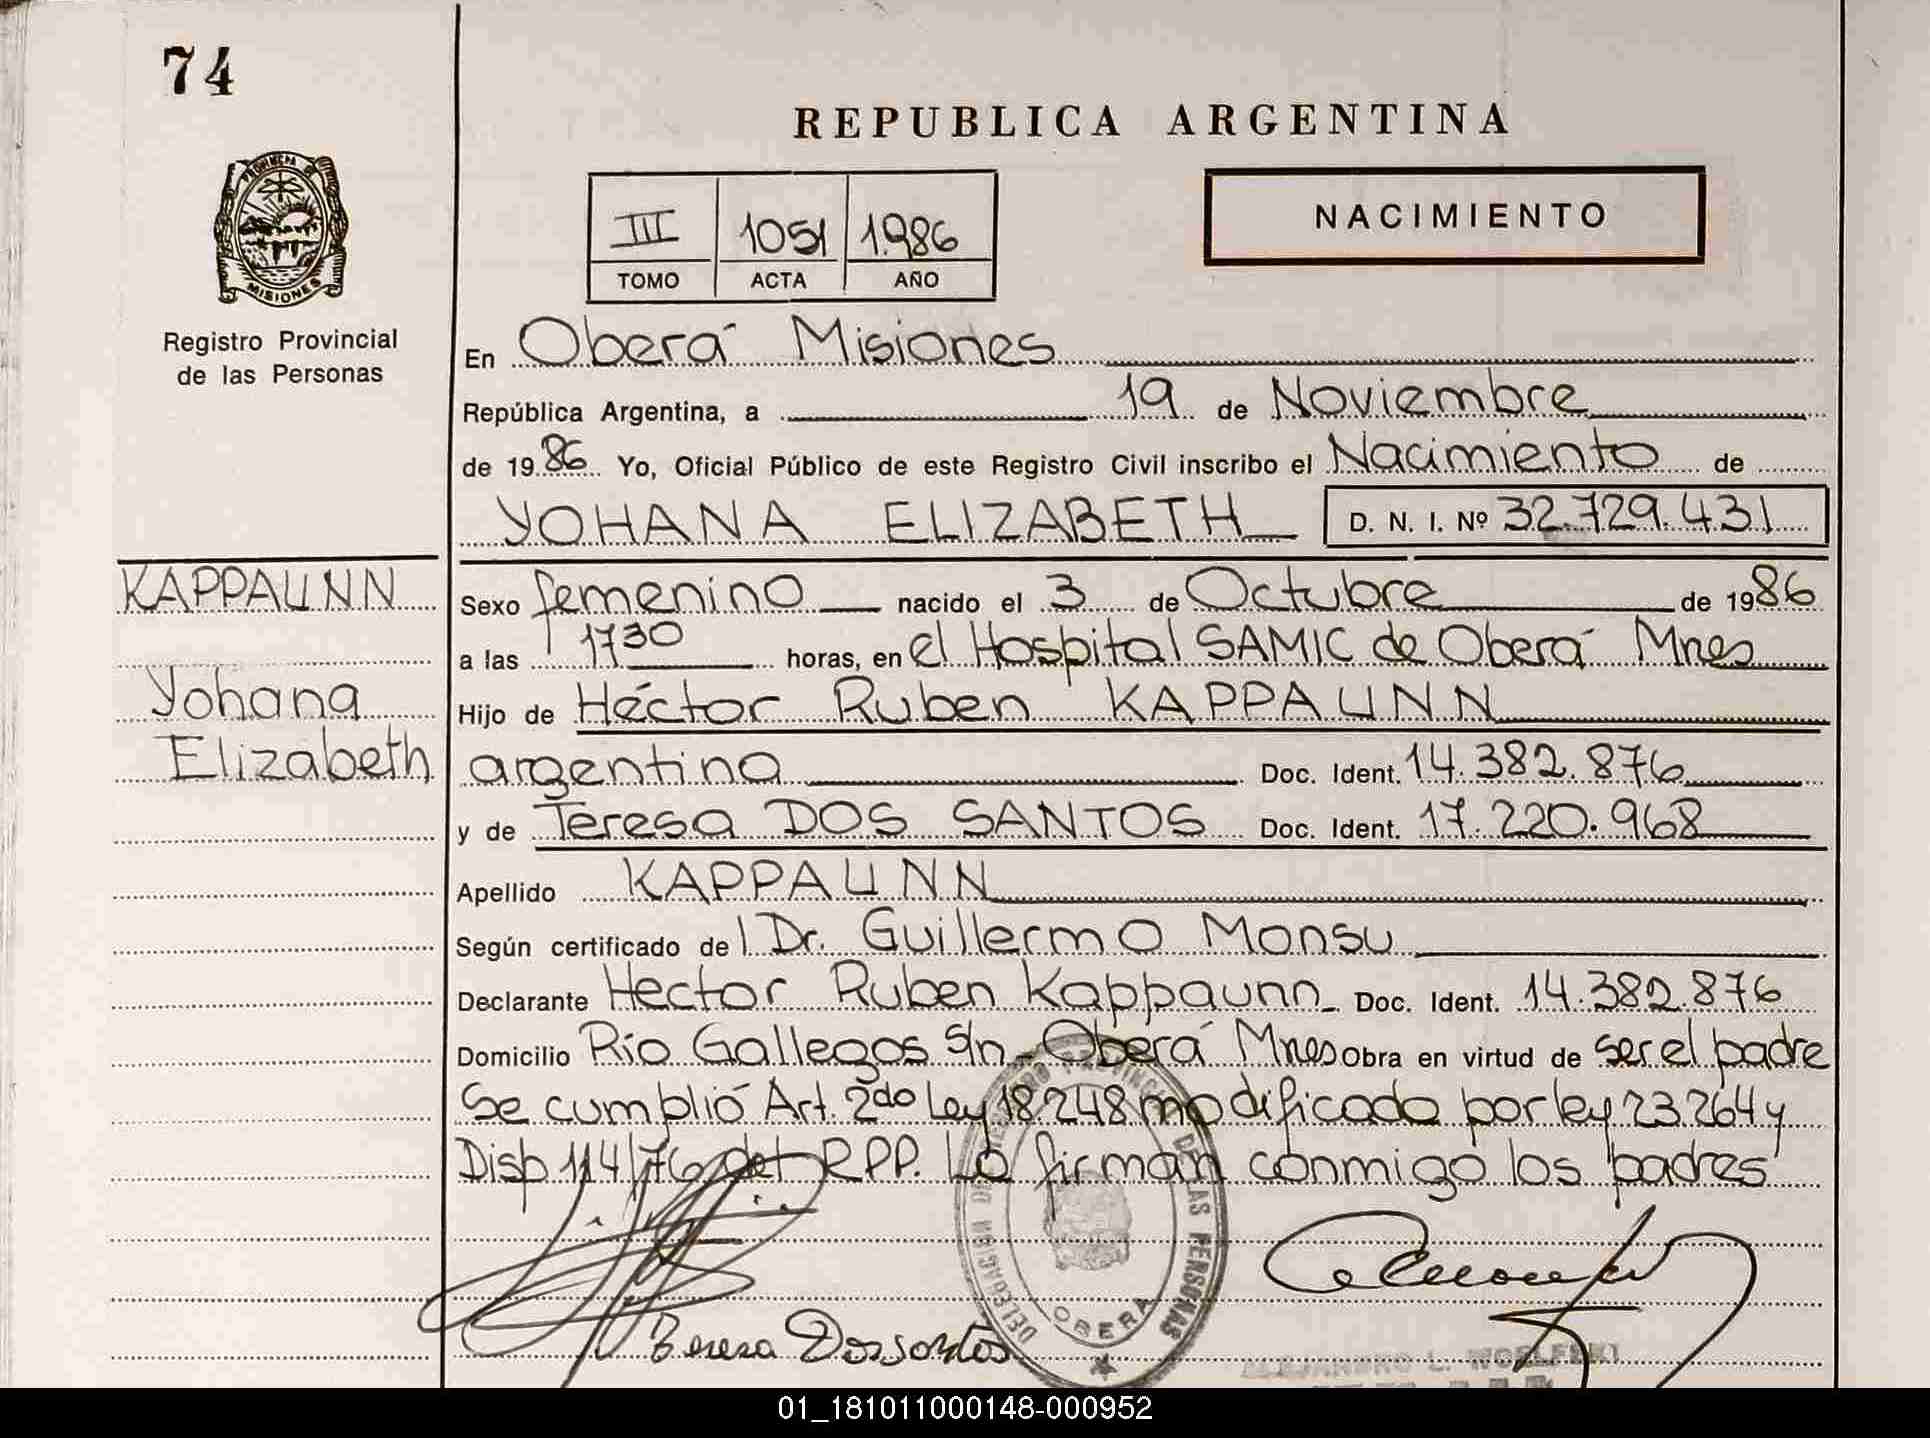 74
REPUBLICA ARGENTINA
PROVINCIA
MISIONES
Registro Provincial
de las Personas
III 1051 1.986
TOMO ACTA AÑO
NACIMIENTO
En Oberá Misiones
República Argentina, a 19 de Noviembre
de 1986 Yo, Oficial Público de este Registro Civil inscribo el Nacimiento de
YOHANA ELIZABETH D. N. I. Nº 32.729.431
KAPPAUNN
Yohana
Elizabeth
Sexo femenino nacido el 3 de Octubre de 1986
a las 1730 horas, en el Hospital SAMIC de Oberá Mnes
Hijo de Héctor Ruben KAPPAUNN
argentino Doc. Ident. 14.382.876
y de Teresa DOS SANTOS Doc. Ident. 17.220.968
Apellido KAPPAUNN
Según certificado del Dr. Guillermo Monsu
Declarante Hector Ruben Kappaunn Doc. Ident. 14.382.876
Domicilio Río Gallegos S/n - Oberá Mnes Obra en virtud de ser el padre
Se cumplió Art. 2do Ley 18.248 modificado por ley 23.264 y
Disp 114/76 del R.P.P. Lo firman conmigo los padres
DELEGACION DE LAS PERSONAS
OBERA
Teresa Dossantos
ALEJANDRO L. WOELFERT
01_181011000148-000952